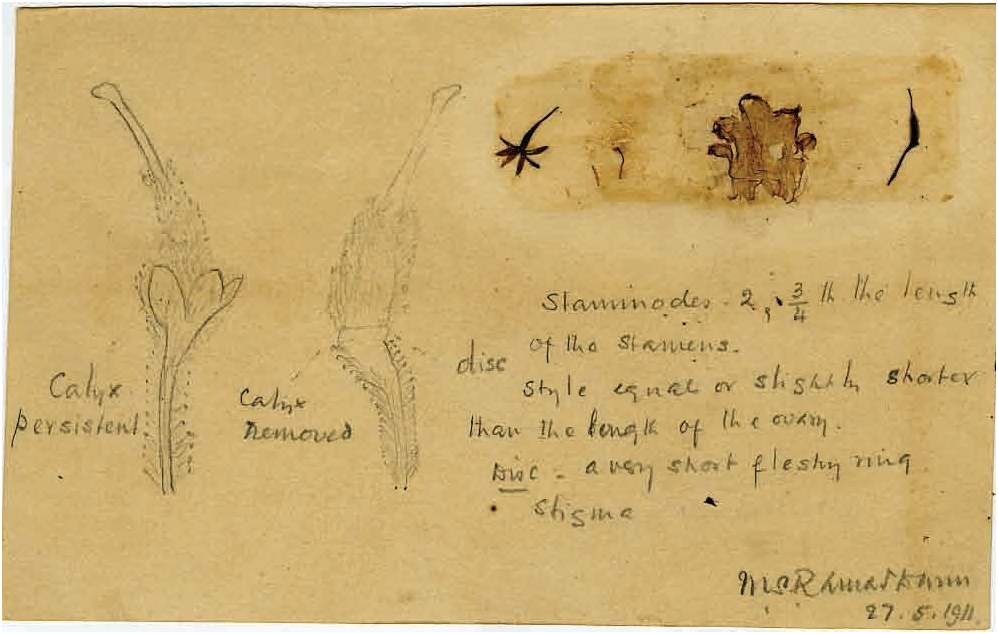 Calyx
persistent
Calyx
removed
disc
Staminodes - 2, 3/4 th the length
of the stamens.
Style equal or slightly shorter
than the length of the ovary.
Disc - a very short fleshy ring
Stigma
27.5.1911